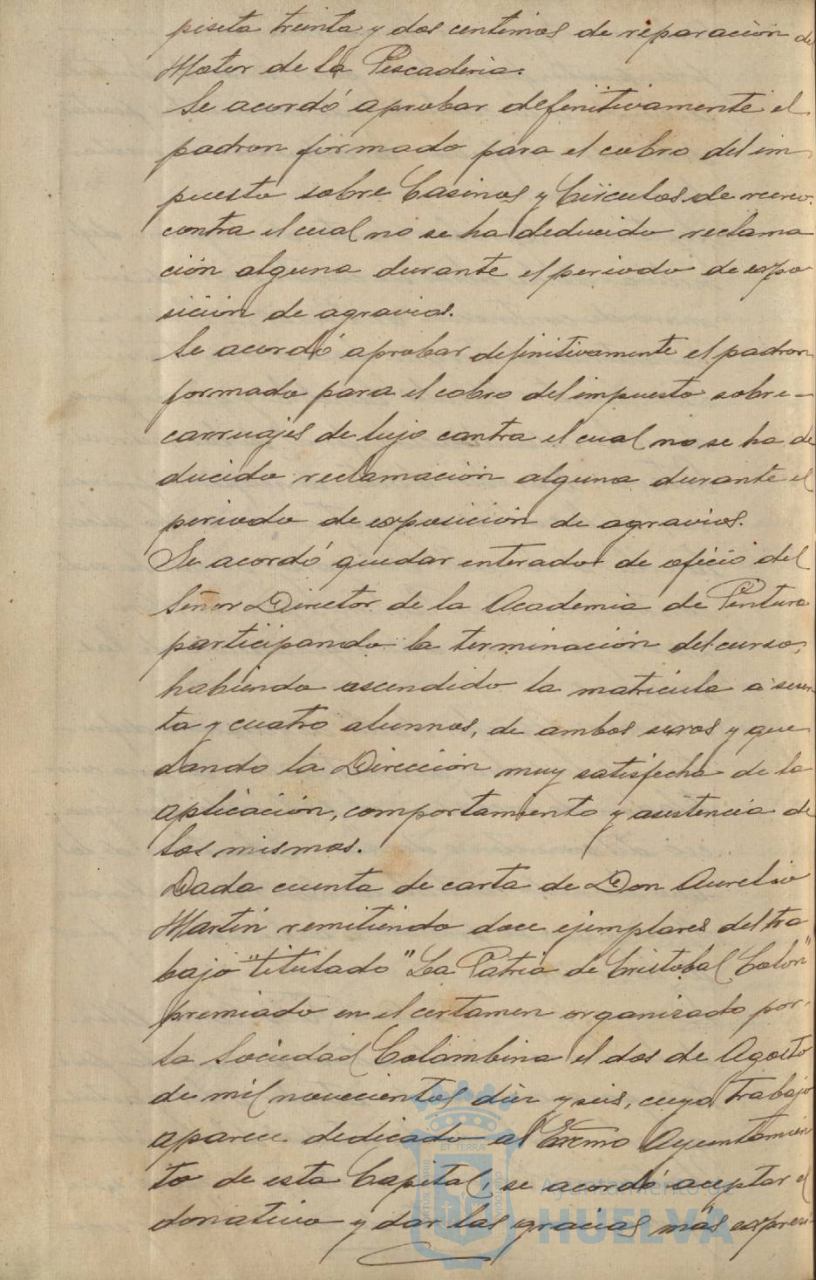 piseta treinta y dos centimos de reparación del
Motor de la Pescaderia.
Se acordó aprobar definitivamente el
padron formado para el cobro del im
puesto sobre Casinos y Circulos de recreo.
contra el cual no se ha deducido reclama
ción alguna durante el periodo de expo
sición de agravios.
Se acordó aprobar definitivamente el padron
formado para el cobro del impuesto sobre-
carruajes de lujo contra el cual no se ha de
ducido reclamación alguna durante el
periodo de exposición de agravios.
Se acordó quedar enterado de oficio del
Señor Director de la Academia de Pintura
participando la terminación del curso,
habiendo ascendido la matricula a sesen
ta y cuatro alumnos, de ambos sexos y que
dando la Dirección muy satisfecha de la
aplicación, comportamiento y asistencia de
los mismos.
Dada cuenta de carta de Don Aurelio
Martin remitiendo doce ejemplares del tra
bajo titulado "La Patria de Cristobal Colon"
premiado en el certamen organizado por
la Sociedad Colombina el dos de Agosto
de mil novecientos diez y seis, cuyo trabajo
aparece dedicado al Excmo Ayuntamien
to de esta Capital, se acordó aceptar el
donativo y dar las gracias más expresi-
Ayuntamiento de
HUELVA